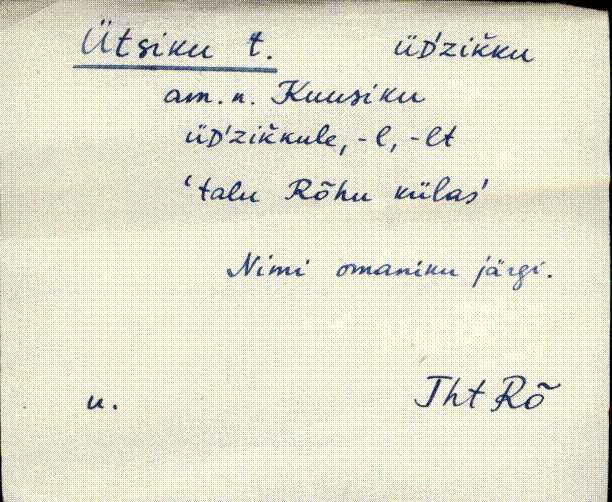 Ütsiku t. üᴅ'zikku
am. n. Kuusiku
üᴅ'zikkule, -l, -lt
‘talu Rõhu külas’
Nimi omaniku järgi.
u. Tht Rõ